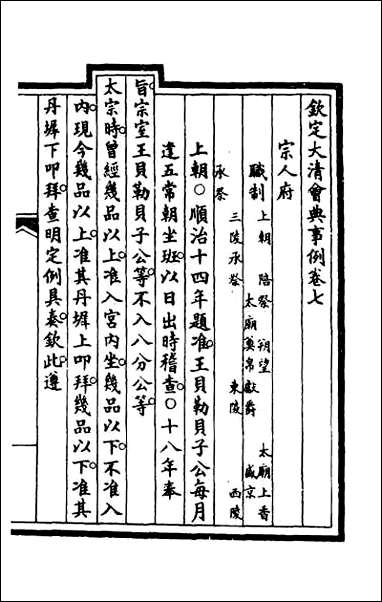 欽定大清會典事例卷七
宗人府
職制 上朝 陪祭 朔望 太廟上香
太廟奠帛獻爵 盛京
三陵承祭 東陵 西陵
承祭
上朝○順治十四年題准王貝勒貝子公每月
逢五常朝坐班以日出時稽查○十八年奉
旨宗室王貝勒貝子公等不入八分公等
太宗時曾經幾品以上准入宮內坐幾品以下不准入
內現今幾品以上准其丹墀上叩拜幾品以下准其
丹墀下叩拜查明定例具奏欽此遵